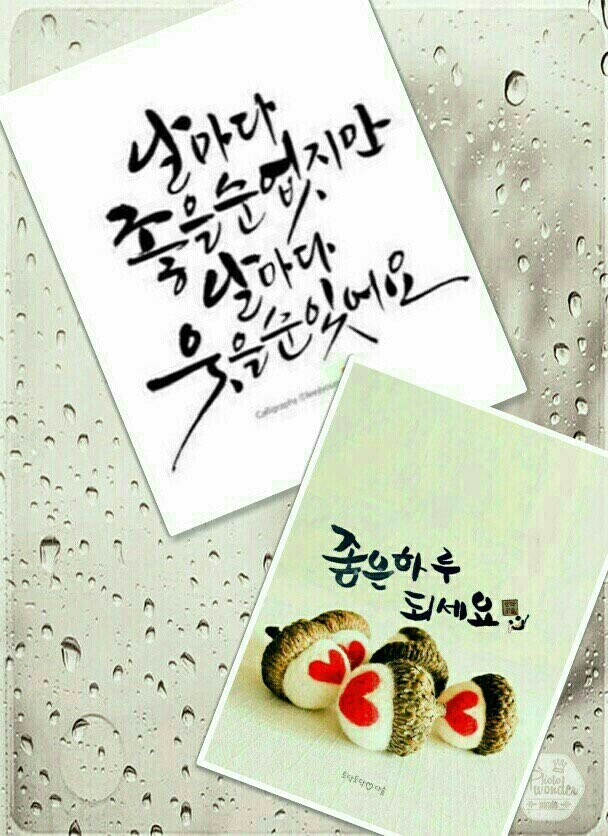 날마다
좋을순 없지만
날마다
웃을순 있어요
Calligraphy
좋은하루
되세요
토닥토닥♡마음
Photo
wonder